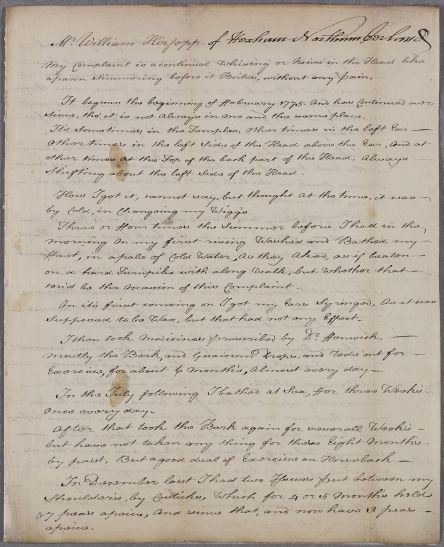 Mr. William Hirsopp of Hexham Northumberland
My Complaint is a Continual Whising or Noise in the Head like
a pann Simmering before it Boiles, without any pain.
It begun the beginning of February 1775. And hav Continued ever
Since, tho it is not always in one and the same place.
Its Sometimes in the Temples, other times in the left Ear —
other times in the left Side of the Head above the Ear, and at
other times At the Top of the back part of the Head, always
Shifting about the left Side of the Head.
How I got it, cannot say, but thought At the time, it was —
by Cold, in Changeing my Wiggs.
Three or four times the Summer before I had in the
morning on my first rising Washed and Bathed my —
Feet, in a pale of Cold Water, As they Aked, as if beaten —
on a hard Turnpike with a long Walk, but whether that —
coud be the Occasion of this Complaint.
On its first comeing on I got my Ears Syringed, As it was
Supposed to be Wax, but that had not any Effect.
I then took Medicines prescribed by Dr. Fenwick, —
mostly the Bark, and Guaicum Drops, and Rode out for —
Exercise, for about 6 months, Almost every day —
In the July following I bathed at Sea, for three Weeks
Once every day.
After that took the Bark again for severall Weeks —
but have not taken any thing for these Eight Months
by past, But a good deal of Exercise on Horseback —
In December last I had two Issues put between my
Shoulders, by Causticks, Which for 4 or 5 Months held
7 peas apeice, And since that, and now have 3 peas
apeice.